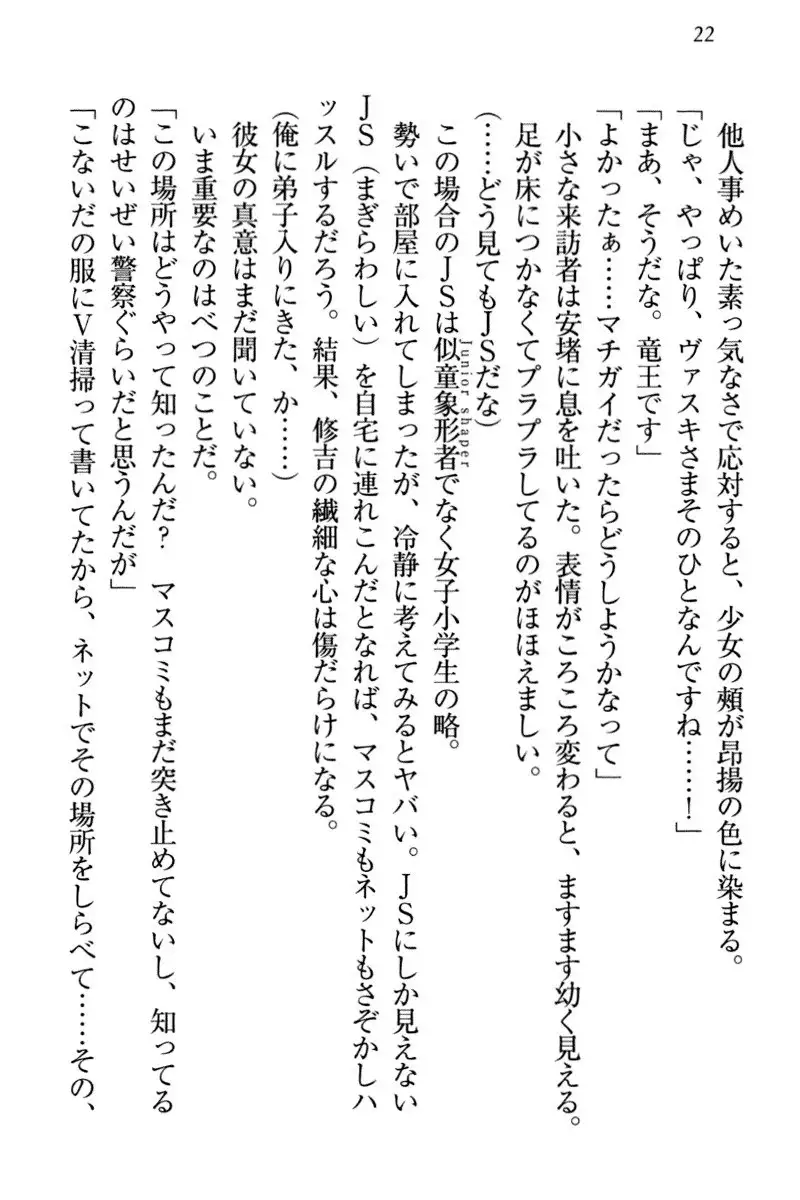 22
他人事めいた素っ気なさで応対すると、少女の頰が昂揚の色に染まる。
「じゃ、やっぱり、ヴァスキさまそのひとなんですね……！」
「まあ、そうだな。竜王です」
「よかったぁ……マチガイだったらどうしようかなって」
小さな来訪者は安堵に息を吐いた。表情がころころ変わると、ますます幼く見える。
足が床につかなくてプラプラしてるのがほほえましい。
（……どう見てもＪＳだな）
この場合のＪＳは似童象形者でなく女子小学生の略。
Junior shaper
勢いで部屋に入れてしまったが、冷静に考えてみるとヤバい。ＪＳにしか見えない
ＪＳ（まぎらわしい）を自宅に連れこんだとなれば、マスコミもネットもさぞかしハ
ッスルするだろう。結果、修吉の繊細な心は傷だらけになる。
（俺に弟子入りにきた、か……）
彼女の真意はまだ聞いていない。
いま重要なのはべつのことだ。
「この場所はどうやって知ったんだ？　マスコミもまだ突き止めてないし、知ってる
のはせいぜい警察ぐらいだと思うんだが」
「こないだの服にＶ清掃って書いてたから、ネットでその場所をしらべて……その、